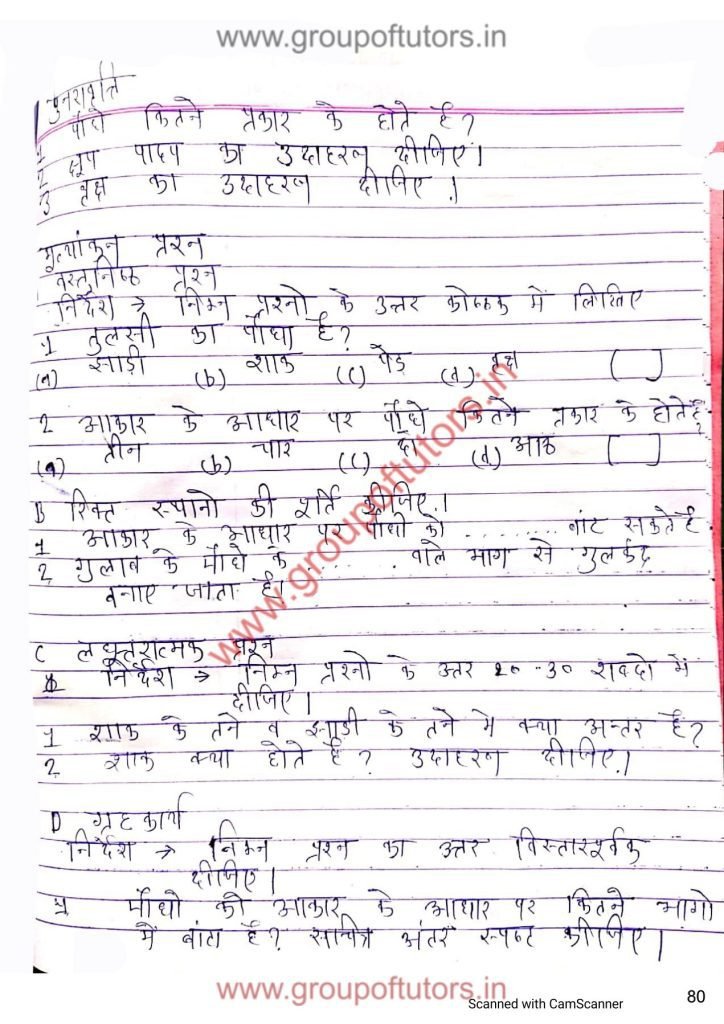 www.groupoftutors.in
पुनरावृत्ति
1 पौधो कितने प्रकार के होते है?
2 क्षूप पादप का उदाहरण दीजिए।
3 वृक्ष का उदाहरण दीजिए।
मूल्यांकन प्रश्न
वस्तुनिष्ठ प्रश्न
निर्देश → निम्न प्रश्नो के उत्तर कोष्ठक में लिखिए
1 तुलसी का पौधा है?
(a) झाड़ी (b) शाक (c) पेड़ (d) वृक्ष [ ]
2 आकार के आधार पर पौधे कितने प्रकार के होते है?
(a) तीन (b) चार (c) दो (d) आठ [ ]
B रिक्त स्थानो की पूर्ति कीजिए।
1 आकार के आधार पर पौधो को ......... बांट सकते है
2 गुलाब के पौधे के ........ वाले भाग से गुलकंद
बनाए जाता है।
C लघुत्तरात्मक प्रश्न
निर्देश → निम्न प्रश्नो के उत्तर 20-30 शब्दो में
दीजिए।
1 शाक के तने व झाड़ी के तने मे क्या अन्तर है?
2 शाक क्या होते है? उदाहरण दीजिए।
D ग्रहकार्य
निर्देश → निम्न प्रश्न का उत्तर विस्तारपूर्वक
दीजिए।
1 पौधो को आकार के आधार पर कितने भागो
मे बांटा है? सचित्र अंतर स्पष्ट कीजिए।
www.groupoftutors.in
www.groupoftutors.in
Scanned with CamScanner
80